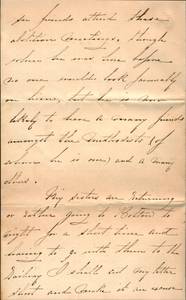 see friends attend these
abolition meetings, though
when he was here before
no one would look proudly
on him, but he is now
likely to have a many friends
amongst the Methodists (of
whom he is one) and a many
others.
My sisters are returning
or rather going to Bolton to
night for a short time and
having to go with them to the
Railway I shall cut my letter
short and make it an excuse